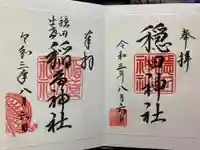 奉拝
穏田神社
令和三年八月六日
奉拝
穏田
稲荷神社
令和三年八月六日